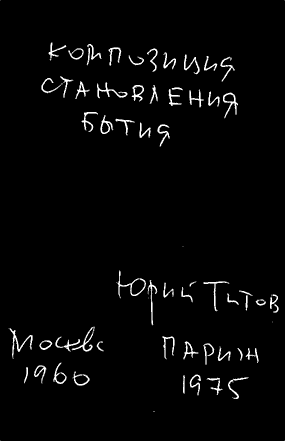 КОМПОЗИЦИЯ
СТАНОВЛЕНИЯ
БЫТИЯ
Юрий Титов
Москва ПАРИЖ
1960 1975